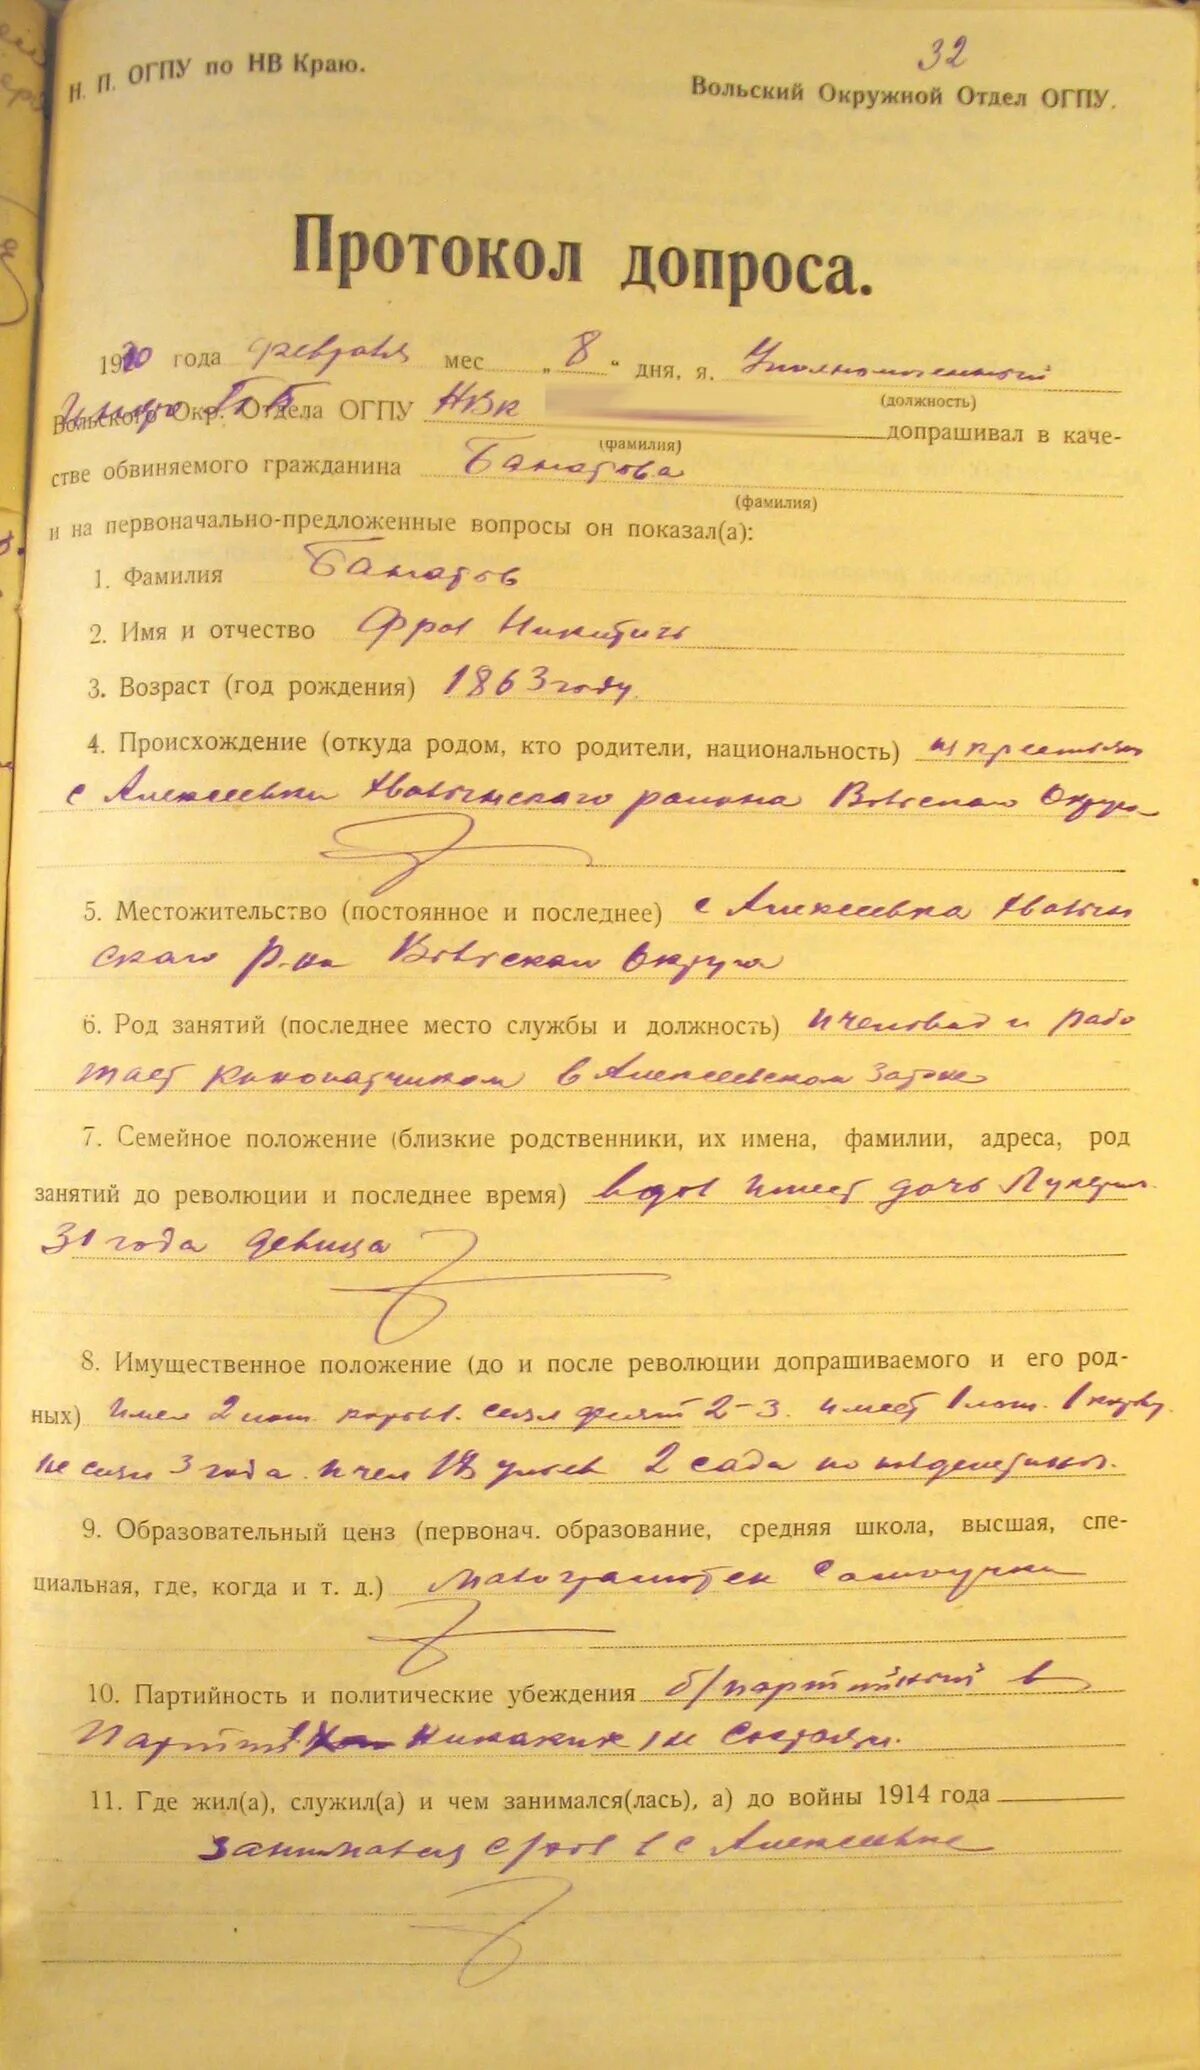 32
Н. П. ОГПУ по НВ Краю.
Вольский Окружной Отдел ОГПУ.
Протокол допроса.
1930 года февраля мес „ 8 “ дня, я. Уполномоченный
(должность)
Вольского Окр. Отдела ОГПУ НВК допрашивал в каче-
(фамилия)
стве обвиняемого гражданина
(фамилия)
и на первоначально-предложенные вопросы он показал(а):
1. Фамилия
2. Имя и отчество Фрол Никитичь
3. Возраст (год рождения) 1863 году
4. Происхождение (откуда родом, кто родители, национальность) из крестьян
с Алексеевки района Вольского Округа
5. Местожительство (постоянное и последнее) с Алексеевка
скаго р-на Вольского Округа
6. Род занятий (последнее место службы и должность) пчеловод и рабо
тает конопатчиком в Алексеевском Затоне
7. Семейное положение (близкие родственники, их имена, фамилии, адреса, род
занятий до революции и последнее время) вдов имеет дочь Лукерья
31 года девица
8. Имущественное положение (до и после революции допрашиваемого и его род-
ных) имел 2 лош. коров. сеял 2-3. имеет 1 лош. 1 корову
не сеял 3 года пчел 18 ульев 2 сада по
9. Образовательный ценз (первонач. образование, средняя школа, высшая, спе-
циальная, где, когда и т. д.) малограмотен самоучка
10. Партийность и политические убеждения б/партийный в
партии никаких не состоял.
11. Где жил(а), служил(а) и чем занимался(лась), а) до войны 1914 года
занимался с/хоз в с Алексеевке